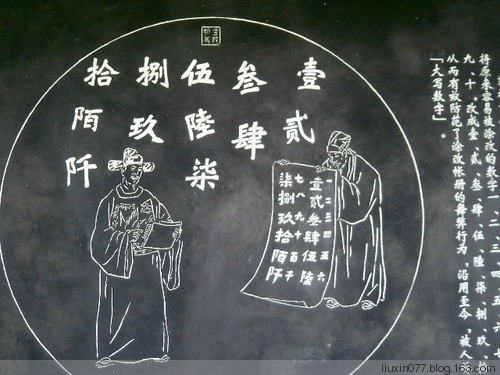 将原来容易被涂改的数字一、二、三、四、五、六、七、
九、十,改成壹、贰、叁、肆、伍、陆、柒、捌、玖、
从而有效防范了涂改帐册的舞弊行为,沿用至今,被人
「大写数字」。
壹贰
叁肆
伍陸柒
捌玖
拾陌阡
一二三四五六
壹贰叁肆伍陸
七八九十百千
柒捌玖拾陌阡
liuxin077.blog.163.com